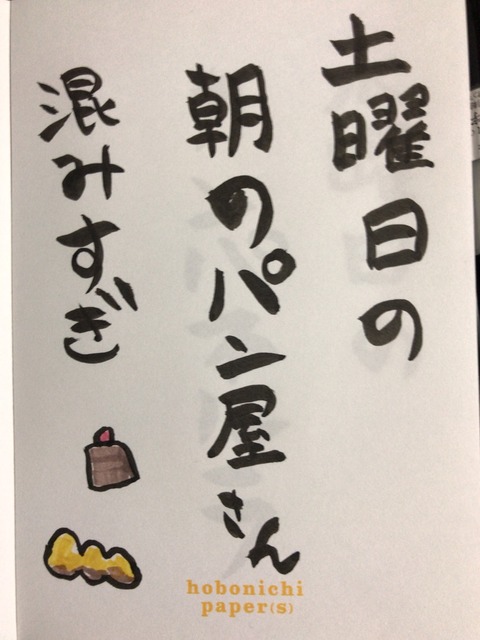 土曜日の
朝のパン屋さん
混みすぎ
hobonichi
paper(s)